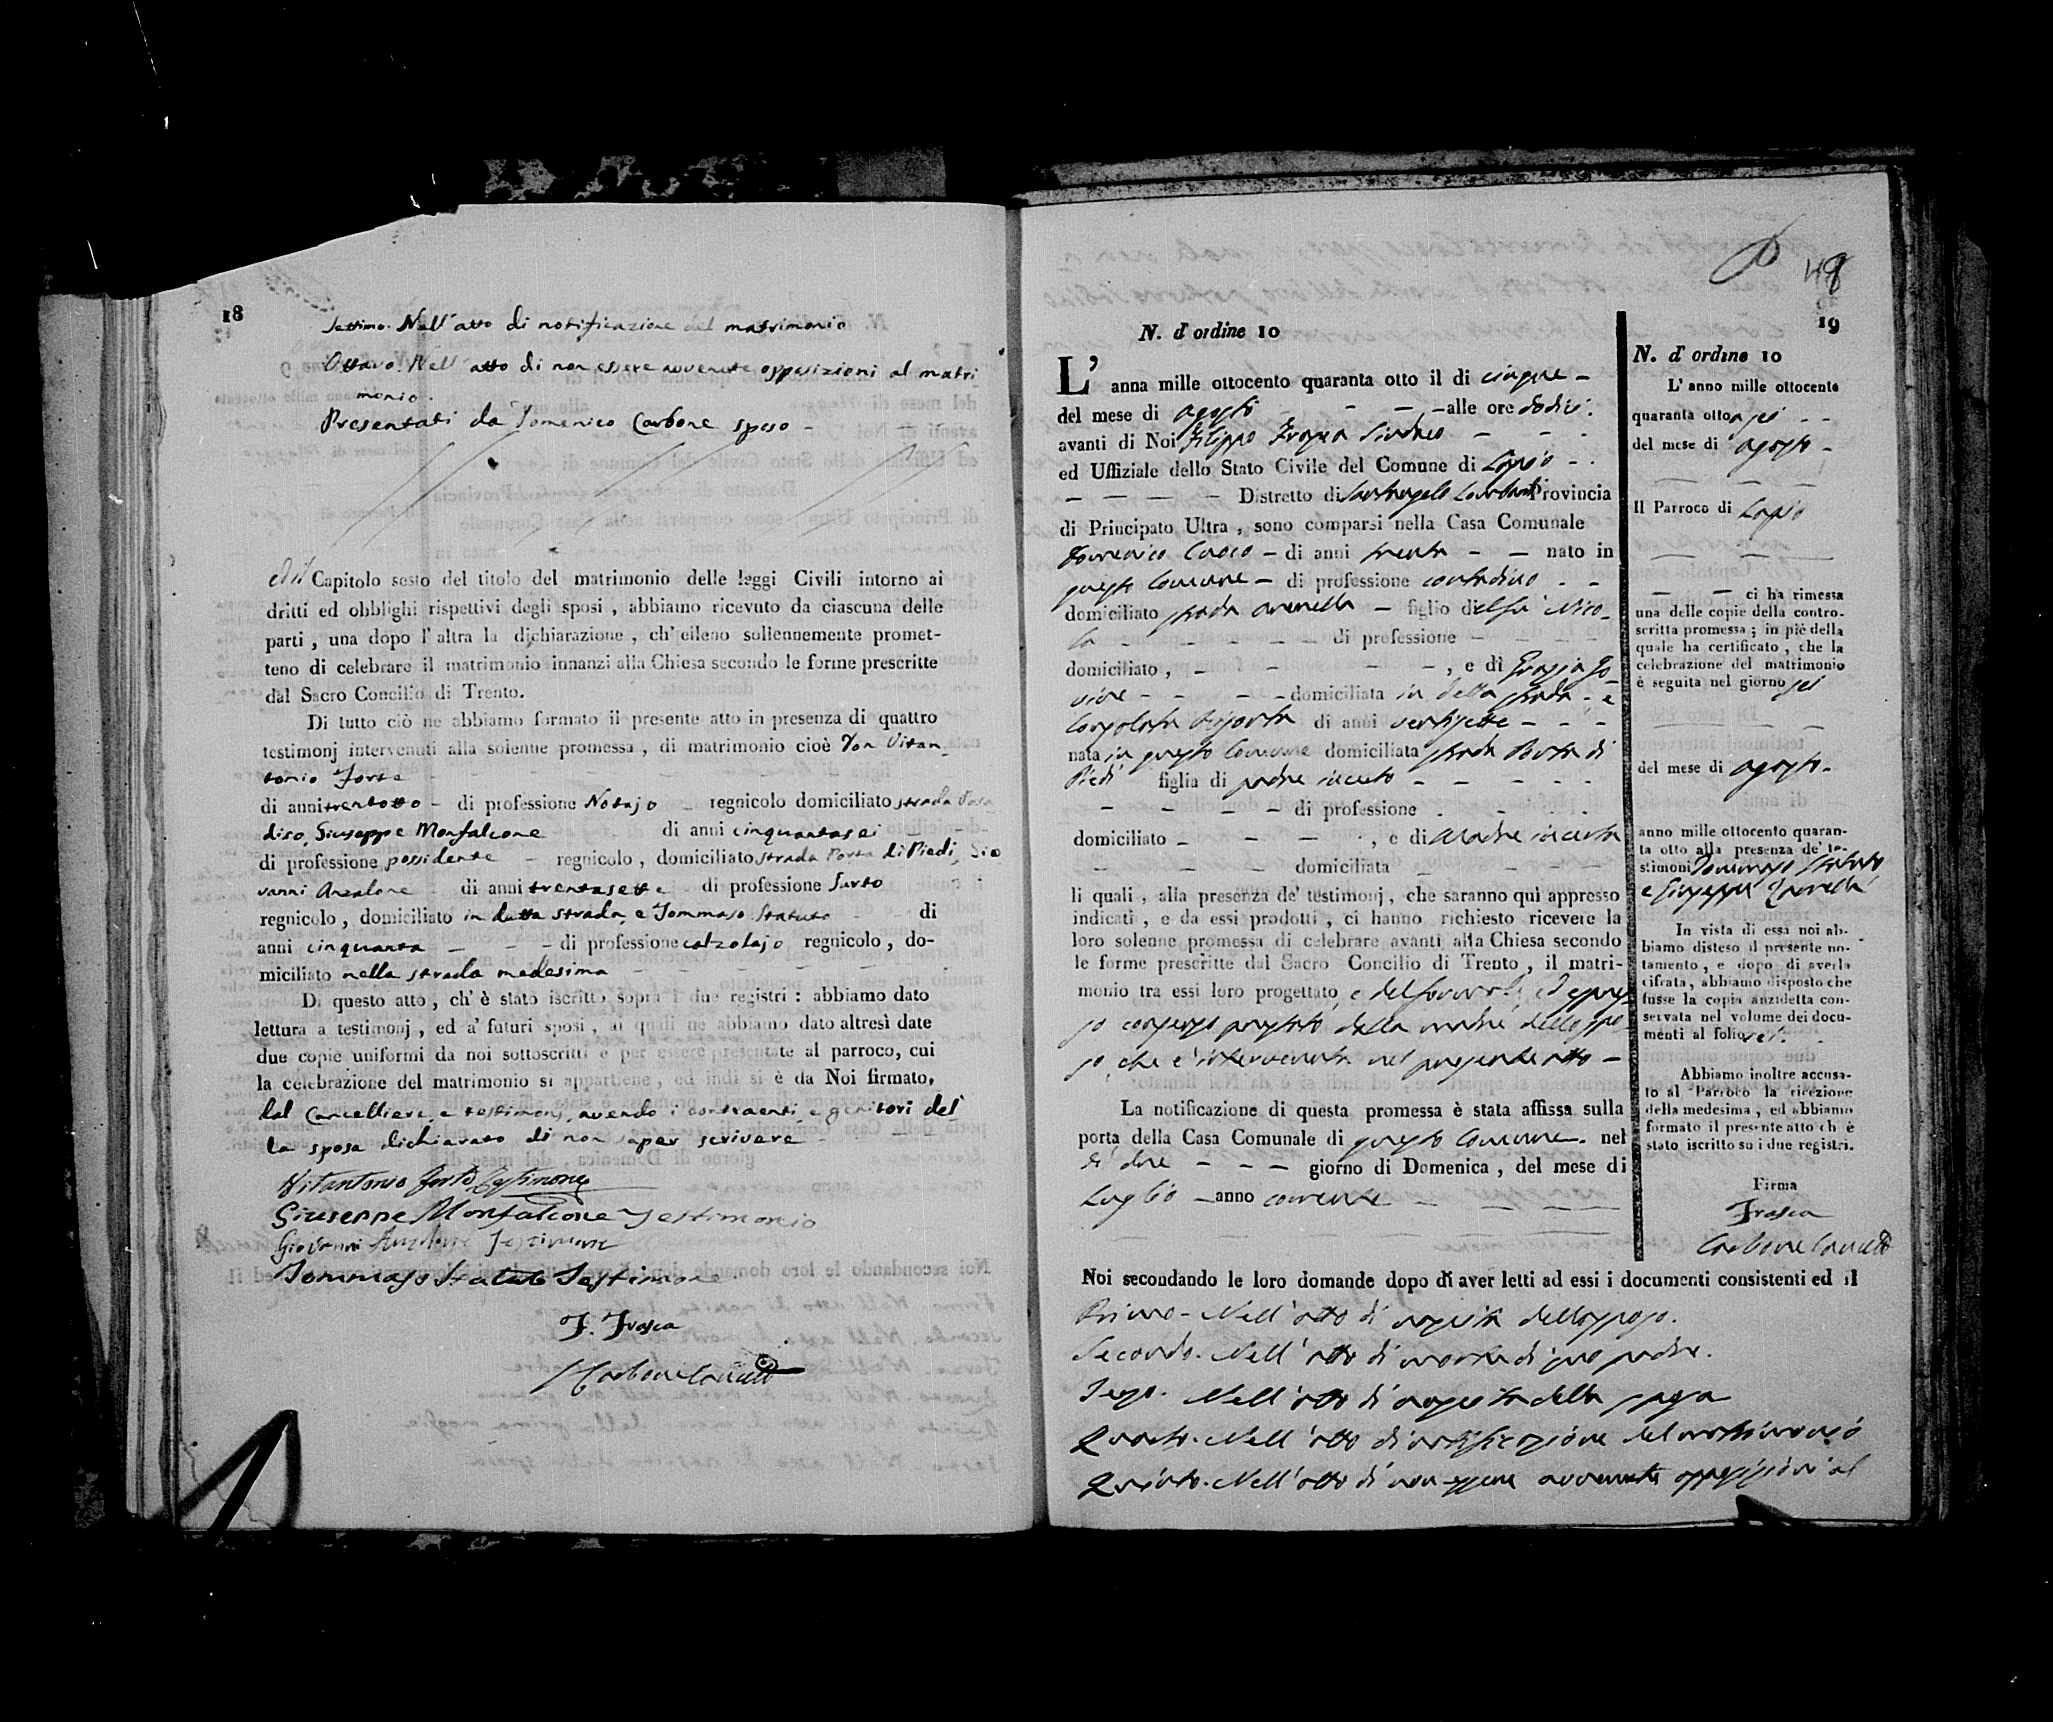 18
Settimo. Nell' atto di notificazione del matrimonio
Ottavo. Nell' atto di non essere avvenute opposizioni al matri
monio.
Presentati da Domenico Carbone sposo -
Capitolo sesto del titolo del matrimonio delle leggi Civili intorno ai
dritti ed obblighi rispettivi degli sposi, abbiamo ricevuto da ciascuna delle
parti, una dopo l' altra la dichiarazione, ch' eileno sollennemente promet-
teno di celebrare il matrimonio innanzi alla Chiesa secondo le forme prescritte
dal Sacro Concilio di Trento.
Di tutto ciò ne abbiamo formato il presente atto in presenza di quattro
testimonj intervenuti alla solenne promessa, di matrimonio cioè Don Vitan
tonio Forte
di anni trentotto - di professione Notajo - regnicolo domiciliato strada
Giuseppe Monfalcone di anni cinquantasei
di professione possidente - regnicolo, domiciliato strada Porta di Piedi, Gio
vanni Anzalone di anni trentasette di professione Sarto
regnicolo, domiciliato in detta strada, e Tommaso Statuto di
anni cinquanta - - - di professione calzolajo regnicolo, do-
miciliato nella strada medesima
Di questo atto, ch' è stato iscritto sopra i due registri: abbiamo dato
lettura a testimonj, ed a' futuri sposi, ai quali ne abbiamo dato altresì date
due copie uniformi da noi sottoscritti e per essere presentate al parroco, cui
la celebrazione del matrimonio si appartiene, ed indi si è da Noi firmato,
dal Cancelliere e testimonj, avendo i contraenti e genitori del
la sposa dichiarato di non saper scrivere
Vitantonio Forte Testimone
Giuseppe Monfalcone Testimonio
Giovanni Anzalone Testimone
Tommaso Statuto Testimone
F. Frasca
Carbone Cancell
48
19
N. d' ordine 10
L' anna mille ottocento quaranta otto il di cinque -
del mese di agosto - - - alle ore dodici.
avanti di Noi Filippo Frasca Sindaco - - -
ed Uffiziale dello Stato Civile del Comune di Lapio - .
- - - - - Distretto di Santangelo Lombardi Provincia
di Principato Ultra, sono comparsi nella Casa Comunale
Domenico Cuoco - di anni trenta - - nato in
questo Comune - di professione contadino - -
domiciliato strada - figlio del fu Nico-
la - - - - - di professione - - - -
domiciliato, - - - -, e di Grazia Jo-
vine - - - - domiciliata in detta strada - e
di anni ventisette - - -
nata in questo Comune domiciliata strada Porta di
Piedi figlia di padre incerto - - - - -
- - - - di professione - - -
domiciliato - - - - , e di Madre incerta
- - - domiciliata - - -
li quali, alla presenza de' testimonj, che saranno qui appresso
indicati, e da essi prodotti, ci hanno richiesto ricevere la
loro solenne promessa di celebrare avanti alla Chiesa secondo
le forme prescritte dal Sacro Concilio di Trento, il matri-
monio tra essi loro progettato, e del formale, ed espres-
so consenso prestato dalla madre dello spo-
so, che è intervenuta nel presente atto -
La notificazione di questa promessa è stata affissa sulla
porta della Casa Comunale di questo Comune. nel
dì due - - - giorno di Domenica, del mese di
Luglio - anno corrente - - - -
Noi secondando le loro domande dopo di aver letti ad essi i documenti consistenti ed il
Primo - Nell' atto di nascita dello sposo.
Secondo. Nell' atto di morte di suo padre.
Terzo. Nell' atto di nascita della sposa
Quarto. Nell' atto di notificazione del matrimonio
Quinto. Nell' atto di non essere avvenute opposizioni al
N. d' ordine 10
L' anno mille ottocento
quaranta otto a sei - -
del mese di agosto -
Il Parroco di Lapio
- - ci ha rimessa
una delle copie della contro-
scritta promessa; in piè della
quale ha certificato, che la
celebrazione del matrimonio
è seguita nel giorno sei
del mese di agosto -
anno mille ottocento quaran-
ta otto alla presenza de' te-
stimoni Tommaso Statuto
e Giuseppe
In vista di essa noi ab-
biamo disteso il presente no-
tamento, e dopo di averla
cifrata, abbiamo disposto che
fusse la copia anzidetta con-
servata nel volume dei docu-
menti al folio
Abbiamo inoltre accusa-
to al Parroco la ricezione
della medesima, ed abbiamo
formato il presente atto ch è
stato iscritto su i due registri.
Firma
Frasca
Carbone Cancell